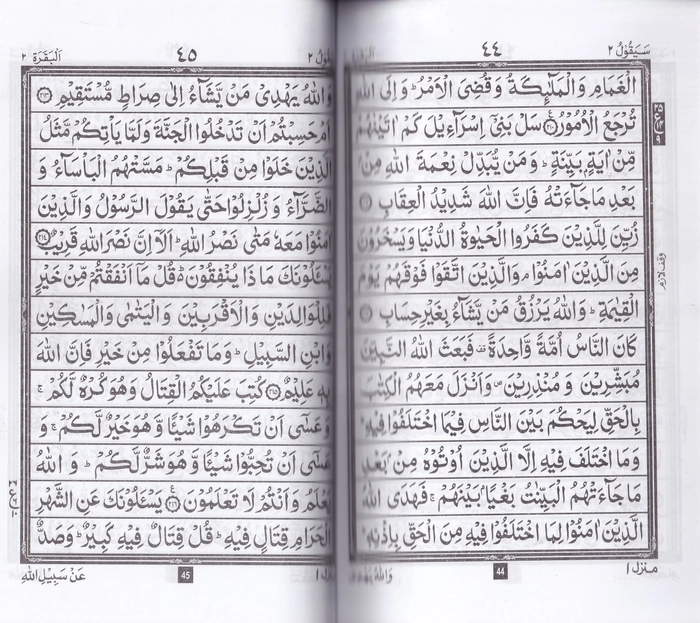 سَيَقُوْلُ ٢
٤٤
الْغَمَامِ وَالْمَلٰٓئِكَةُ وَقُضِیَ الْاَمْرُ ؕ وَاِلَی اللّٰهِ
تُرْجَعُ الْاُمُوْرُ ۟ سَلْ بَنِیْۤ اِسْرَآءِیْلَ كَمْ اٰتَيْنٰهُمْ
مِّنْ اٰيَةٍۭ بَيِّنَةٍ ؕ وَمَنْ يُّبَدِّلْ نِعْمَةَ اللّٰهِ مِنْۢ
بَعْدِ مَا جَآءَتْهُ فَاِنَّ اللّٰهَ شَدِيْدُ الْعِقَابِ
زُيِّنَ لِلَّذِيْنَ كَفَرُوا الْحَيٰوةُ الدُّنْيَا وَيَسْخَرُوْنَ
مِنَ الَّذِيْنَ اٰمَنُوْا ۘ وَالَّذِيْنَ اتَّقَوْا فَوْقَهُمْ يَوْمَ
الْقِيٰمَةِ ؕ وَاللّٰهُ يَرْزُقُ مَنْ يَّشَآءُ بِغَيْرِ حِسَابٍ
كَانَ النَّاسُ اُمَّةً وَّاحِدَةً ۫ فَبَعَثَ اللّٰهُ النَّبِيّٖنَ
مُبَشِّرِيْنَ وَمُنْذِرِيْنَ ۪ وَاَنْزَلَ مَعَهُمُ الْكِتٰبَ
بِالْحَقِّ لِيَحْكُمَ بَيْنَ النَّاسِ فِيْمَا اخْتَلَفُوْا فِيْهِ ؕ
وَمَا اخْتَلَفَ فِيْهِ اِلَّا الَّذِيْنَ اُوْتُوْهُ مِنْۢ بَعْدِ
مَا جَآءَتْهُمُ الْبَيِّنٰتُ بَغْيًۢا بَيْنَهُمْ ۚ فَهَدَی اللّٰهُ
الَّذِيْنَ اٰمَنُوْا لِمَا اخْتَلَفُوْا فِيْهِ مِنَ الْحَقِّ بِاِذْنِهٖ ؕ
وقف لازم
منزل ١
44
وَاللّٰهُ يَهْدِیْ
الْبَقَرَة ٢
٤٥
وَاللّٰهُ يَهْدِیْ مَنْ يَّشَآءُ اِلٰی صِرَاطٍ مُّسْتَقِيْمٍ ﴿٢١٣﴾
اَمْ حَسِبْتُمْ اَنْ تَدْخُلُوا الْجَنَّةَ وَلَمَّا يَاْتِكُمْ مَّثَلُ
الَّذِيْنَ خَلَوْا مِنْ قَبْلِكُمْ ؕ مَسَّتْهُمُ الْبَاْسَآءُ وَ
الضَّرَّآءُ وَ زُلْزِلُوْا حَتّٰی يَقُوْلَ الرَّسُوْلُ وَالَّذِيْنَ
اٰمَنُوْا مَعَهٗ مَتٰی نَصْرُ اللّٰهِ ؕ اَلَاۤ اِنَّ نَصْرَ اللّٰهِ قَرِيْبٌ ﴿٢١٤﴾
يَسْـَٔلُوْنَكَ مَاذَا يُنْفِقُوْنَ ؕ قُلْ مَاۤ اَنْفَقْتُمْ مِّنْ خَيْرٍ
فَلِلْوَالِدَيْنِ وَالْاَقْرَبِيْنَ وَالْيَتٰمٰی وَالْمَسٰكِيْنِ
وَابْنِ السَّبِيْلِ ؕ وَمَا تَفْعَلُوْا مِنْ خَيْرٍ فَاِنَّ اللّٰهَ
بِهٖ عَلِيْمٌ ﴿٢١٥﴾ كُتِبَ عَلَيْكُمُ الْقِتَالُ وَهُوَ كُرْهٌ لَّكُمْ ۚ
وَ عَسٰۤی اَنْ تَكْرَهُوْا شَيْـًٔا وَّهُوَ خَيْرٌ لَّكُمْ ۚ وَ
عَسٰۤی اَنْ تُحِبُّوْا شَيْـًٔا وَّهُوَ شَرٌّ لَّكُمْ ؕ وَ اللّٰهُ
يَعْلَمُ وَاَنْتُمْ لَا تَعْلَمُوْنَ ﴿٢١٦﴾ يَسْـَٔلُوْنَكَ عَنِ الشَّهْرِ
الْحَرَامِ قِتَالٍ فِيْهِ ؕ قُلْ قِتَالٌ فِيْهِ كَبِيْرٌ ؕ وَصَدٌّ
45
عَنْ سَبِيْلِ اللّٰهِ